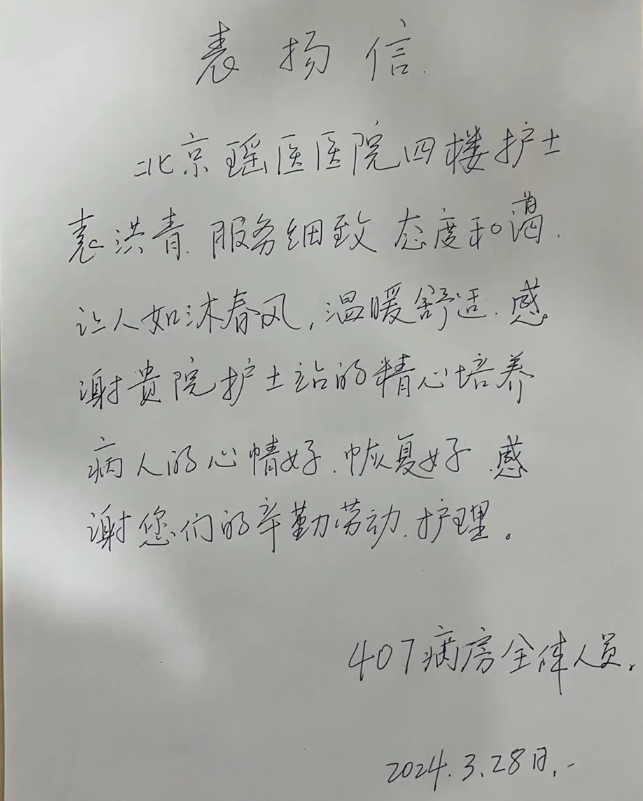 表扬信.
北京瑶医医院四楼护士
袁洪青.服务细致 态度和蔼.
让人如沐春风,温暖舒适.感
谢贵院护士站的精心培养
病人的心情好.恢复好.感
谢您们的辛勤劳动.护理。
407病房全体人员.
2024.3.28日.